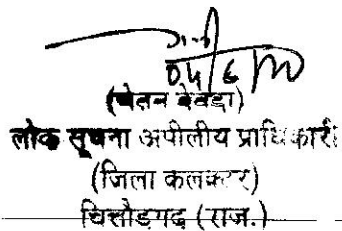 04/6/10
(चेतन देवड़ा)
लोक सूचना अपीलीय प्राधिकारी
(जिला कलक्टर)
चित्तौडगढ (राज.)